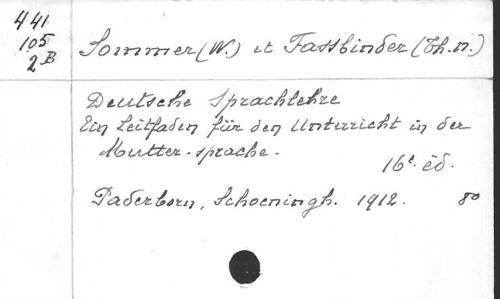 441
105
2B
Sommer (W.) et Fassbinder (Th. n.)
Deutsche Sprachlehre
Ein Leitfaden für den Unterricht in der
Mutter-sprache.
16e. éd.
Paderborn, Schoeningh. 1912. 80